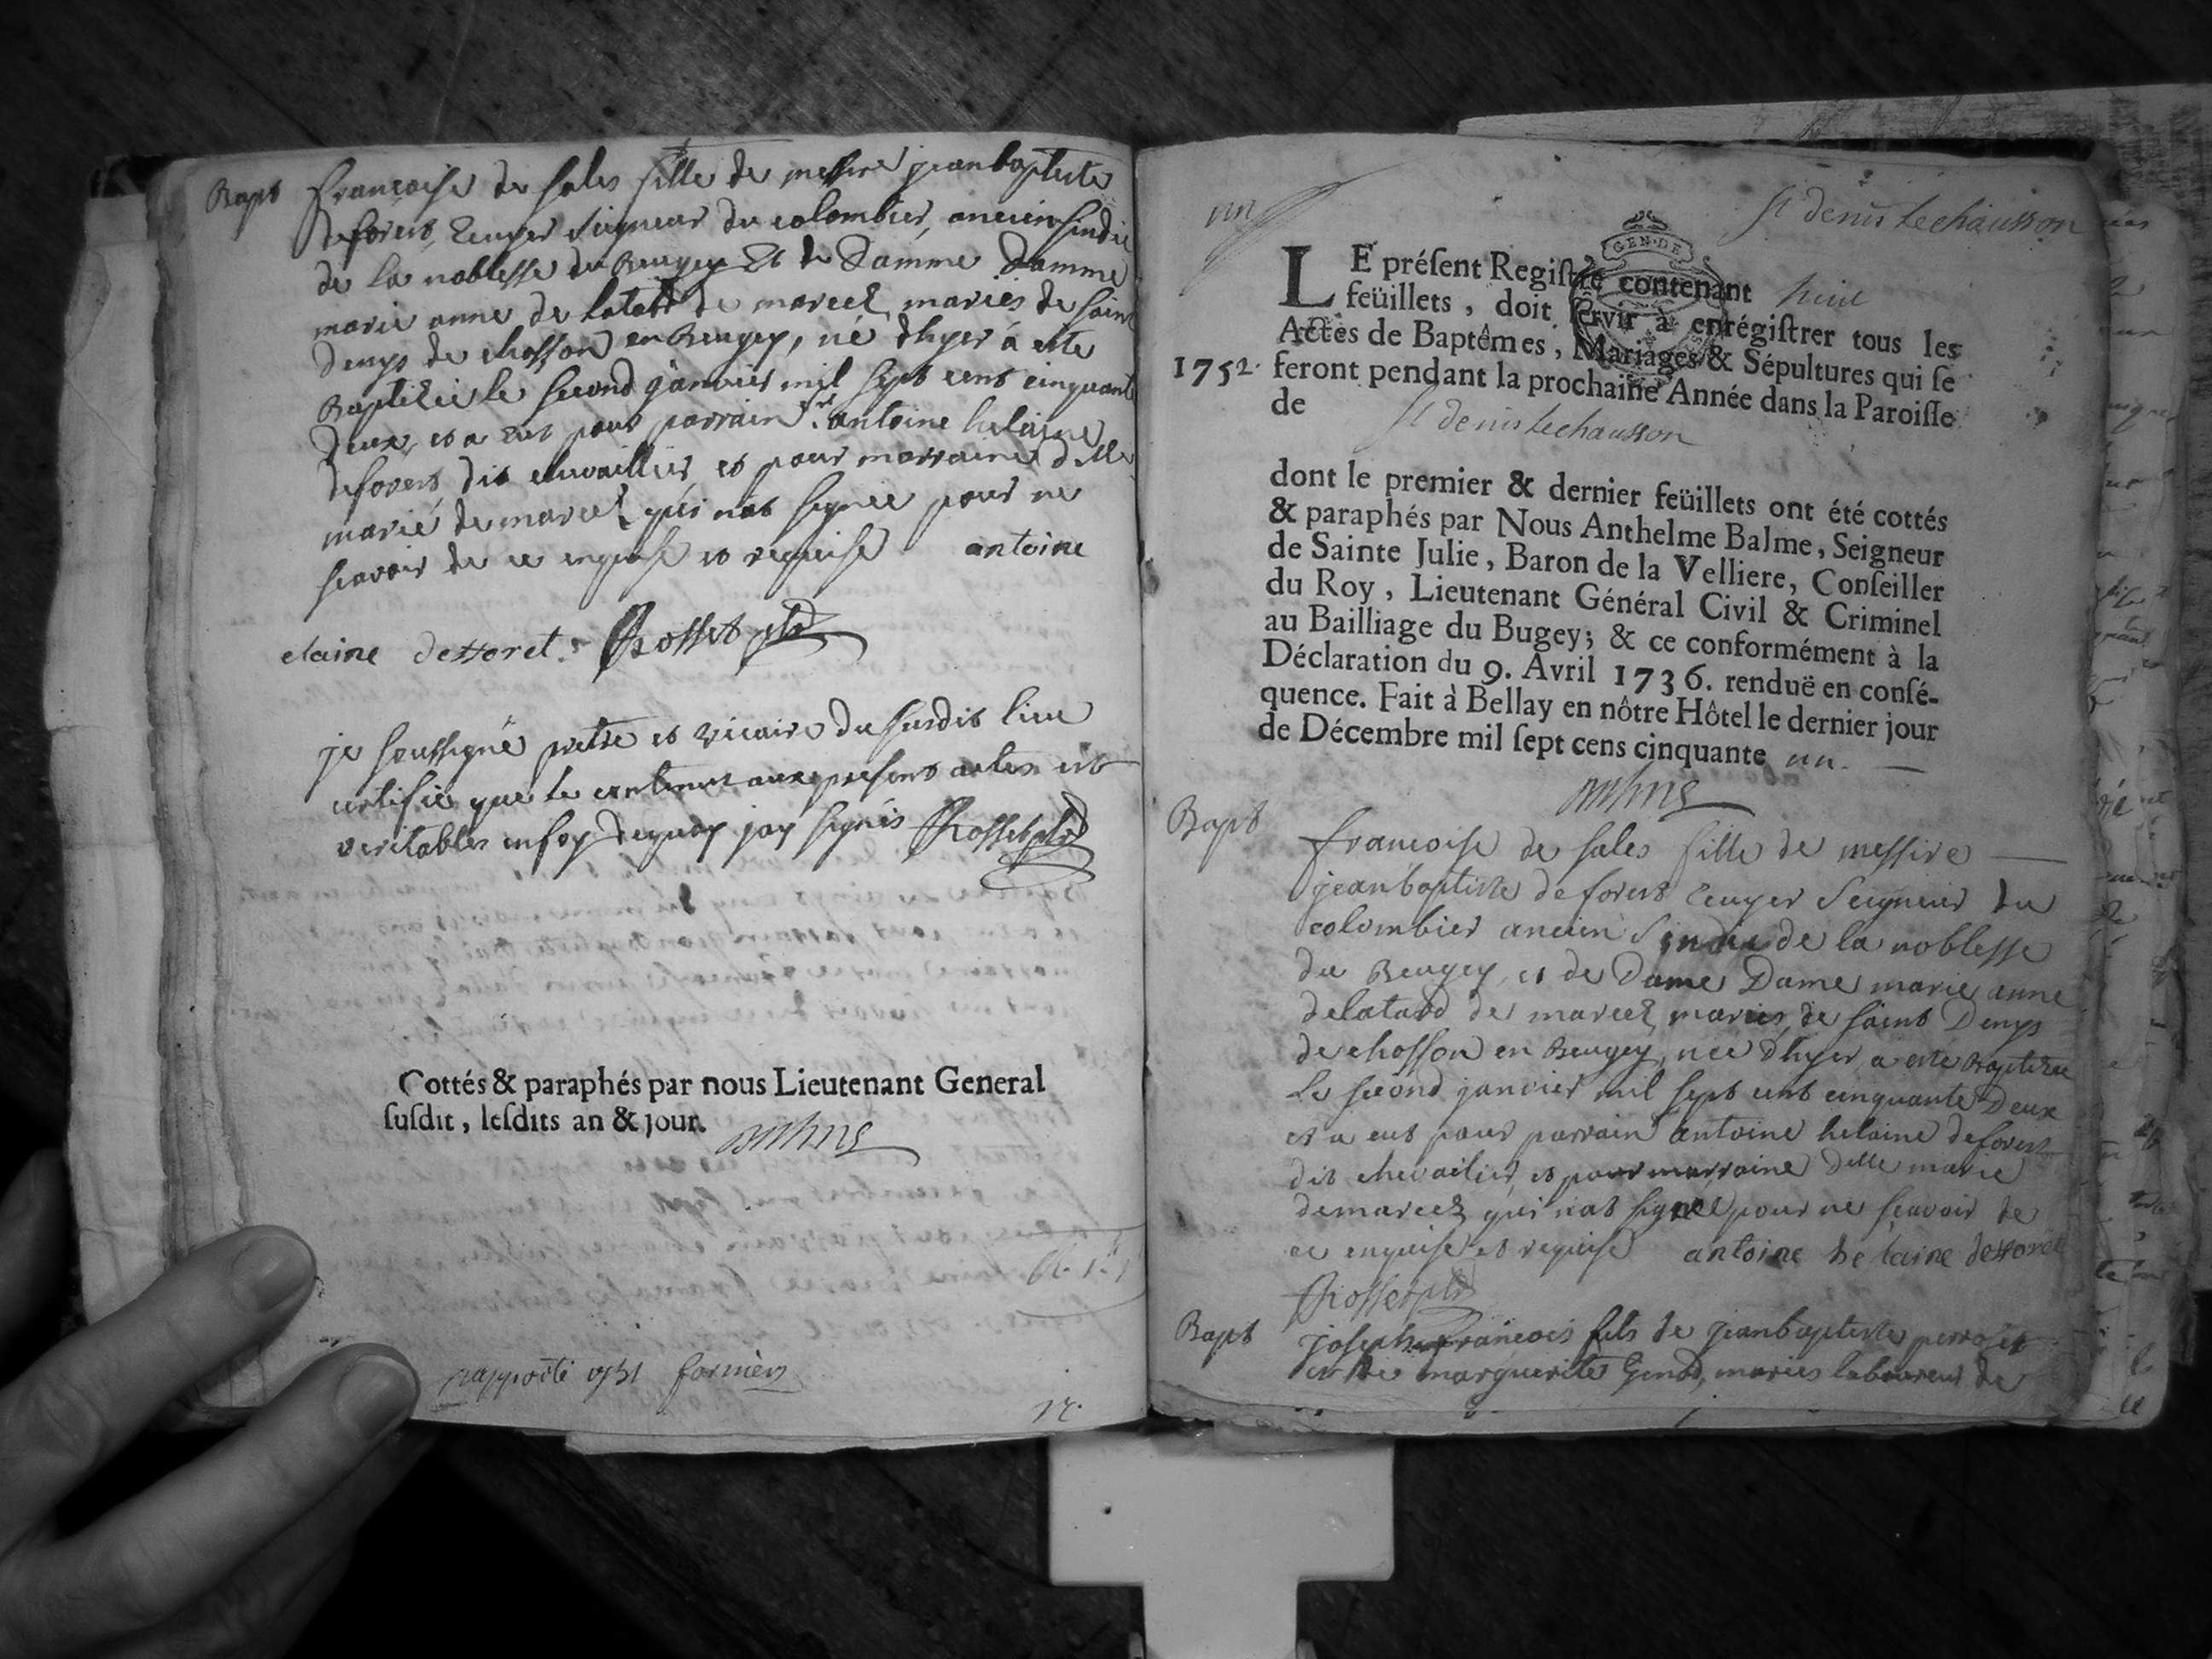 Bapt françoise de sales fille de messire jeanbaptiste
deforest, Ecuyer Seigneur du colombier, ancien sindic
de la noblesse du Beugey Et de Damme Damme
marie anne de latard de marcel mariés de saint
Denys de chosson en Beugey, né d'hyer à esté
Baptizée le second janvier mil sept cent cinquante
Deux, et a eut pour parrain antoine helaine
deforest dit chevaillier, et pour marraine dlle
marie demarcel qui nat signée pour ne
scavoir de ce enquise et requise antoine
elaine defforet. Rosset ptre
je soussigné pretre et vicaire du susdit lieu
certifie que le contenut aux presents actes est
veritables en foy dequoy jay signés Rosset ptre
Cottés & paraphés par nous Lieutenant General
susdit, lesdits an & jour.
rapporté
17.
un
St denis Lechausson
GEN·DE
LE présent Registre contenant huit
feüillets, doit servir à enrégistrer tous les
Actes de Baptêmes, Mariages & Sépultures qui se
1752. feront pendant la prochaine Année dans la Paroisse
de St denis Lechausson
dont le premier & dernier feüillets ont été cottés
& paraphés par Nous Anthelme Balme, Seigneur
de Sainte Julie, Baron de la Velliere, Conseiller
du Roy, Lieutenant Général Civil & Criminel
au Bailliage du Bugey; & ce conformément à la
Déclaration du 9. Avril 1736. renduë en consé-
quence. Fait à Bellay en nôtre Hôtel le dernier jour
de Décembre mil sept cens cinquante un.
Bapt
françoise de sales fille de messire
jeanbaptiste deforest Ecuyer Seigneur du
colombier ancien Sindic de la noblesse
du Beugey, et de Dame Dame marie anne
delatard de marcel mariés de saint Denys
de chosson en Beugey, née d'hyer, a esté Baptizée
Le second janvier mil sept cent cinquante Deux
et a eut pour parrain antoine helaine deforest
dit chevailier, et pour marraine dlle marie
demarcel qui nat signee pour ne scavoir de
ce enquise et requise antoine helaine defforet
Rosset ptre
Bapt joseph françois fils de jeanbaptiste
et de marguerite mariés laboureur de